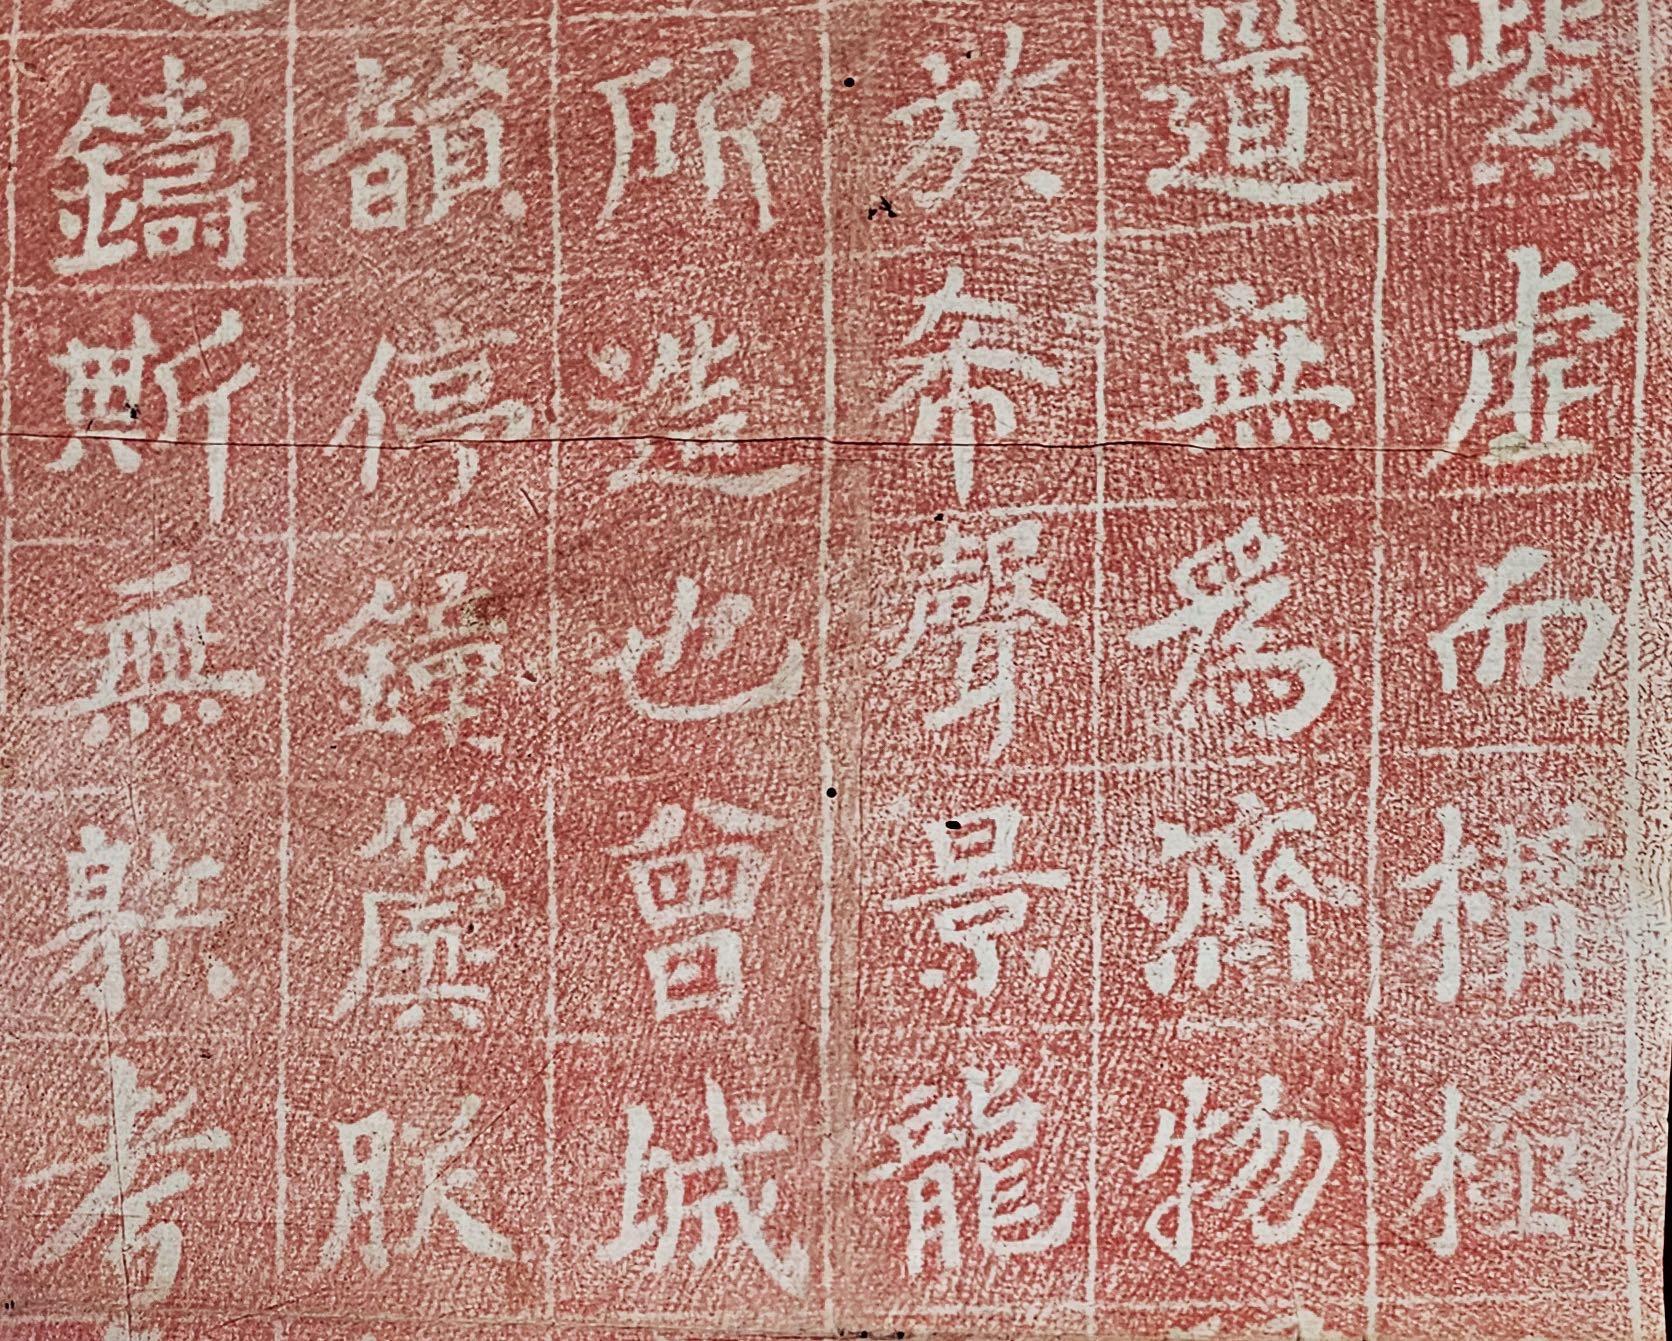 紫虛而構極
道無爲濟物
於希聲景龍
所造也曾城
韻停鐘簴朕
鑄斯無射考